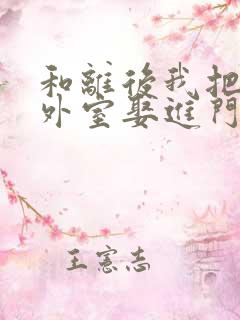 和離後我把
外室娶進門
王憲志